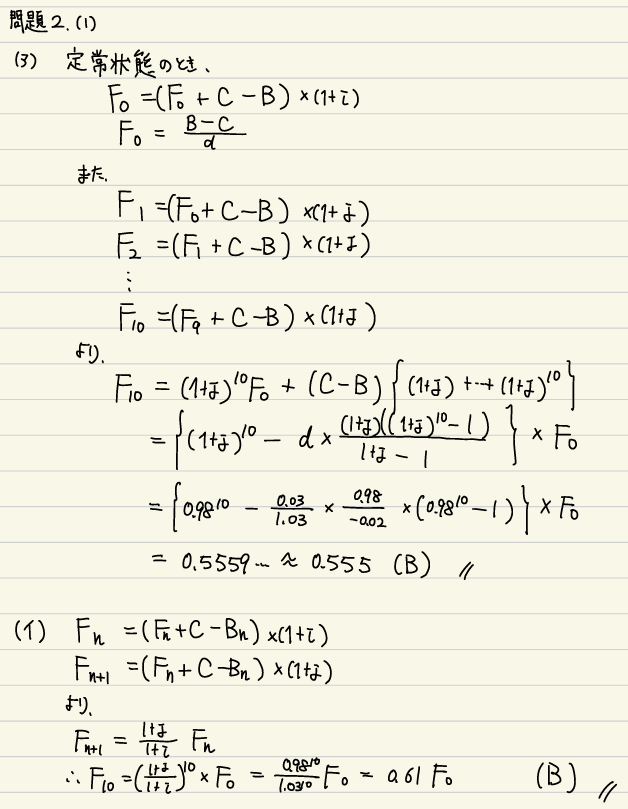 問題2.(1)
(ｱ) 定常状態のとき、
F₀ =(F₀ + C − B) ×(1+i)
F₀ = (B−C)/d
また、
F₁ =(F₀+ C−B) ×(1+j)
F₂ =(F₁ + C−B) ×(1+j)
⋮
F₁₀ =(F₉ + C−B) ×(1+j)
より、
F₁₀ = (1+j)¹⁰F₀ + (C−B) {(1+j) +⋯+ (1+j)¹⁰}
= {(1+j)¹⁰ − d × (1+j)((1+j)¹⁰−1)/(1+j−1)} × F₀
= {0.98¹⁰ − 0.03/1.03 × 0.98/−0.02 ×(0.98¹⁰−1)} × F₀
= 0.5559… ≈ 0.555 (B) //
(イ) Fₙ =(Fₙ+C−Bₙ) ×(1+i)
Fₙ₊₁ =(Fₙ+C−Bₙ) ×(1+j)
より、
Fₙ₊₁ = (1+j)/(1+i) Fₙ
∴ F₁₀ =((1+j)/(1+i))¹⁰ × F₀ = 0.98¹⁰/1.03¹⁰ F₀ = 0.61 F₀ (B) //